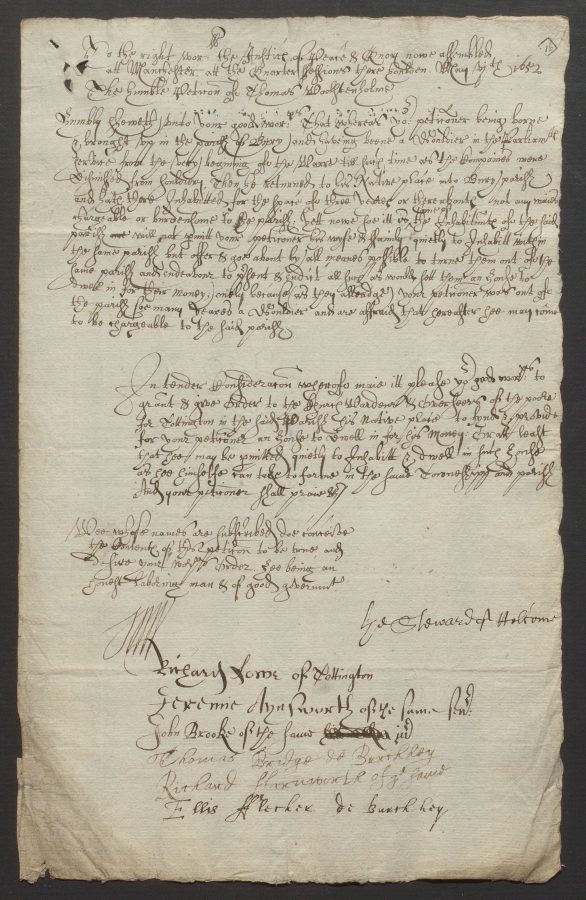 To the right wor: the Justices of Peace & Quorum nowe assembled
att Manchester att the Quarter Sessions there houlden May 1652
The humble Peticon of Thomas Wolstenholme
Humbly sheweth unto your good wor:ps That whereas yor petitioner being borne
& brought upp in the parish of Bury and haveing beene a Souldier in the Parliamts
service from the begining of the Warre till such time as the Companies were
disbanded from Then he returned to his Native place into Bury parish
and hath there Inhabitted for the space of three yeares or thereabouts not any waies
chargeable or burdensome to the parish, yett now soe itt is the Inhabitants of the said
parish will not pmitt your petitioner his wife & family quietly to Inhabitt within
the same parish but offer & goe about by all meanes possible to turne them out of the
same parish and indeavour to psent & indict all such as would sett them an house to
dwell in for their money; onely because (as they alleadge) your petitioner was out of
the parish soe many yeares a Souldier and are affraid that hereafter hee may come
to be chargeable to the said parish
In tender Consideracon whereof maie itt please yor good worps to
grant & give order to the Church Wardens & Overseers of the poore
for Tottington in the said Parish his Native place to fynd & provide
for your petitioner an house to dwell in for his Money Or att least
that hee may be pmitted quietly to Inhabitt & dwell in such house
as hee himselfe can take to farme in the same Towneshipp and parish
And your petitioner shall praie &c
Wee whose names are subscribed doe conceive
the Contents of this peticon to be true and
desire your worpps order. hee being an
honest laboring man & of good governmt
he Steward of Holcome
Richard Rowe of Tottington
Jeremie Aynsworth of the same sen:
John Brooke of the same jud
Thomas Bridge de Burchhey
Richard of ye same
Ellis ffletcher de Burchhey